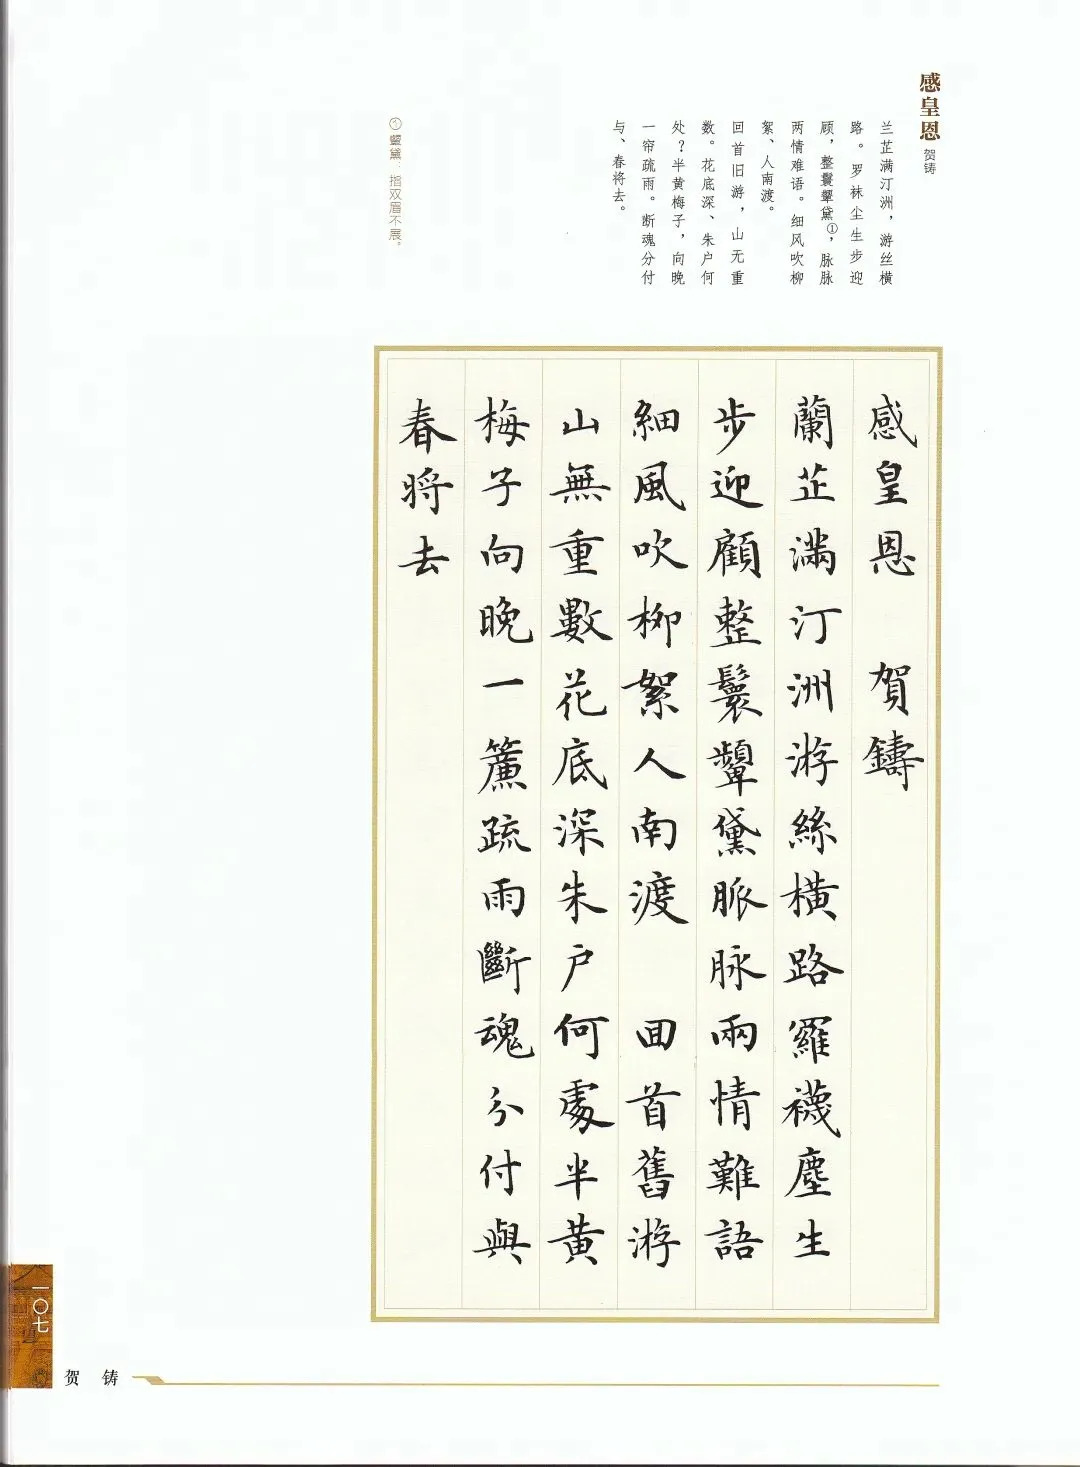 感皇恩 贺铸
兰芷满汀洲，游丝横
路。罗袜尘生步迎
顾，整鬟颦黛①，脉脉
两情难语。细风吹柳
絮、人南渡。
回首旧游，山无重
数。花底深、朱户何
处？半黄梅子，向晚
一帘疏雨。断魂分付
与、春将去。
①颦黛：指双眉不展。
感皇恩 賀鑄
蘭芷滿汀洲游絲橫路羅襪塵生
步迎顧整鬟顰黛脈脉兩情難語
細風吹柳絮人南渡 回首舊游
山無重數花底深朱户何處半黄
梅子向晚一簾疏雨斷魂分付與
春将去
一〇七
贺铸